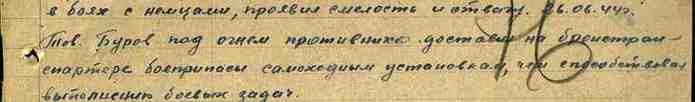 в боях с немцами, проявил смелость и отвагу. 26.06.44г.
Тов. Буров под огнем противника доставил на бронетран-
спортере боеприпасы самоходным установкам, чем способствовал
выполнению боевых задач.